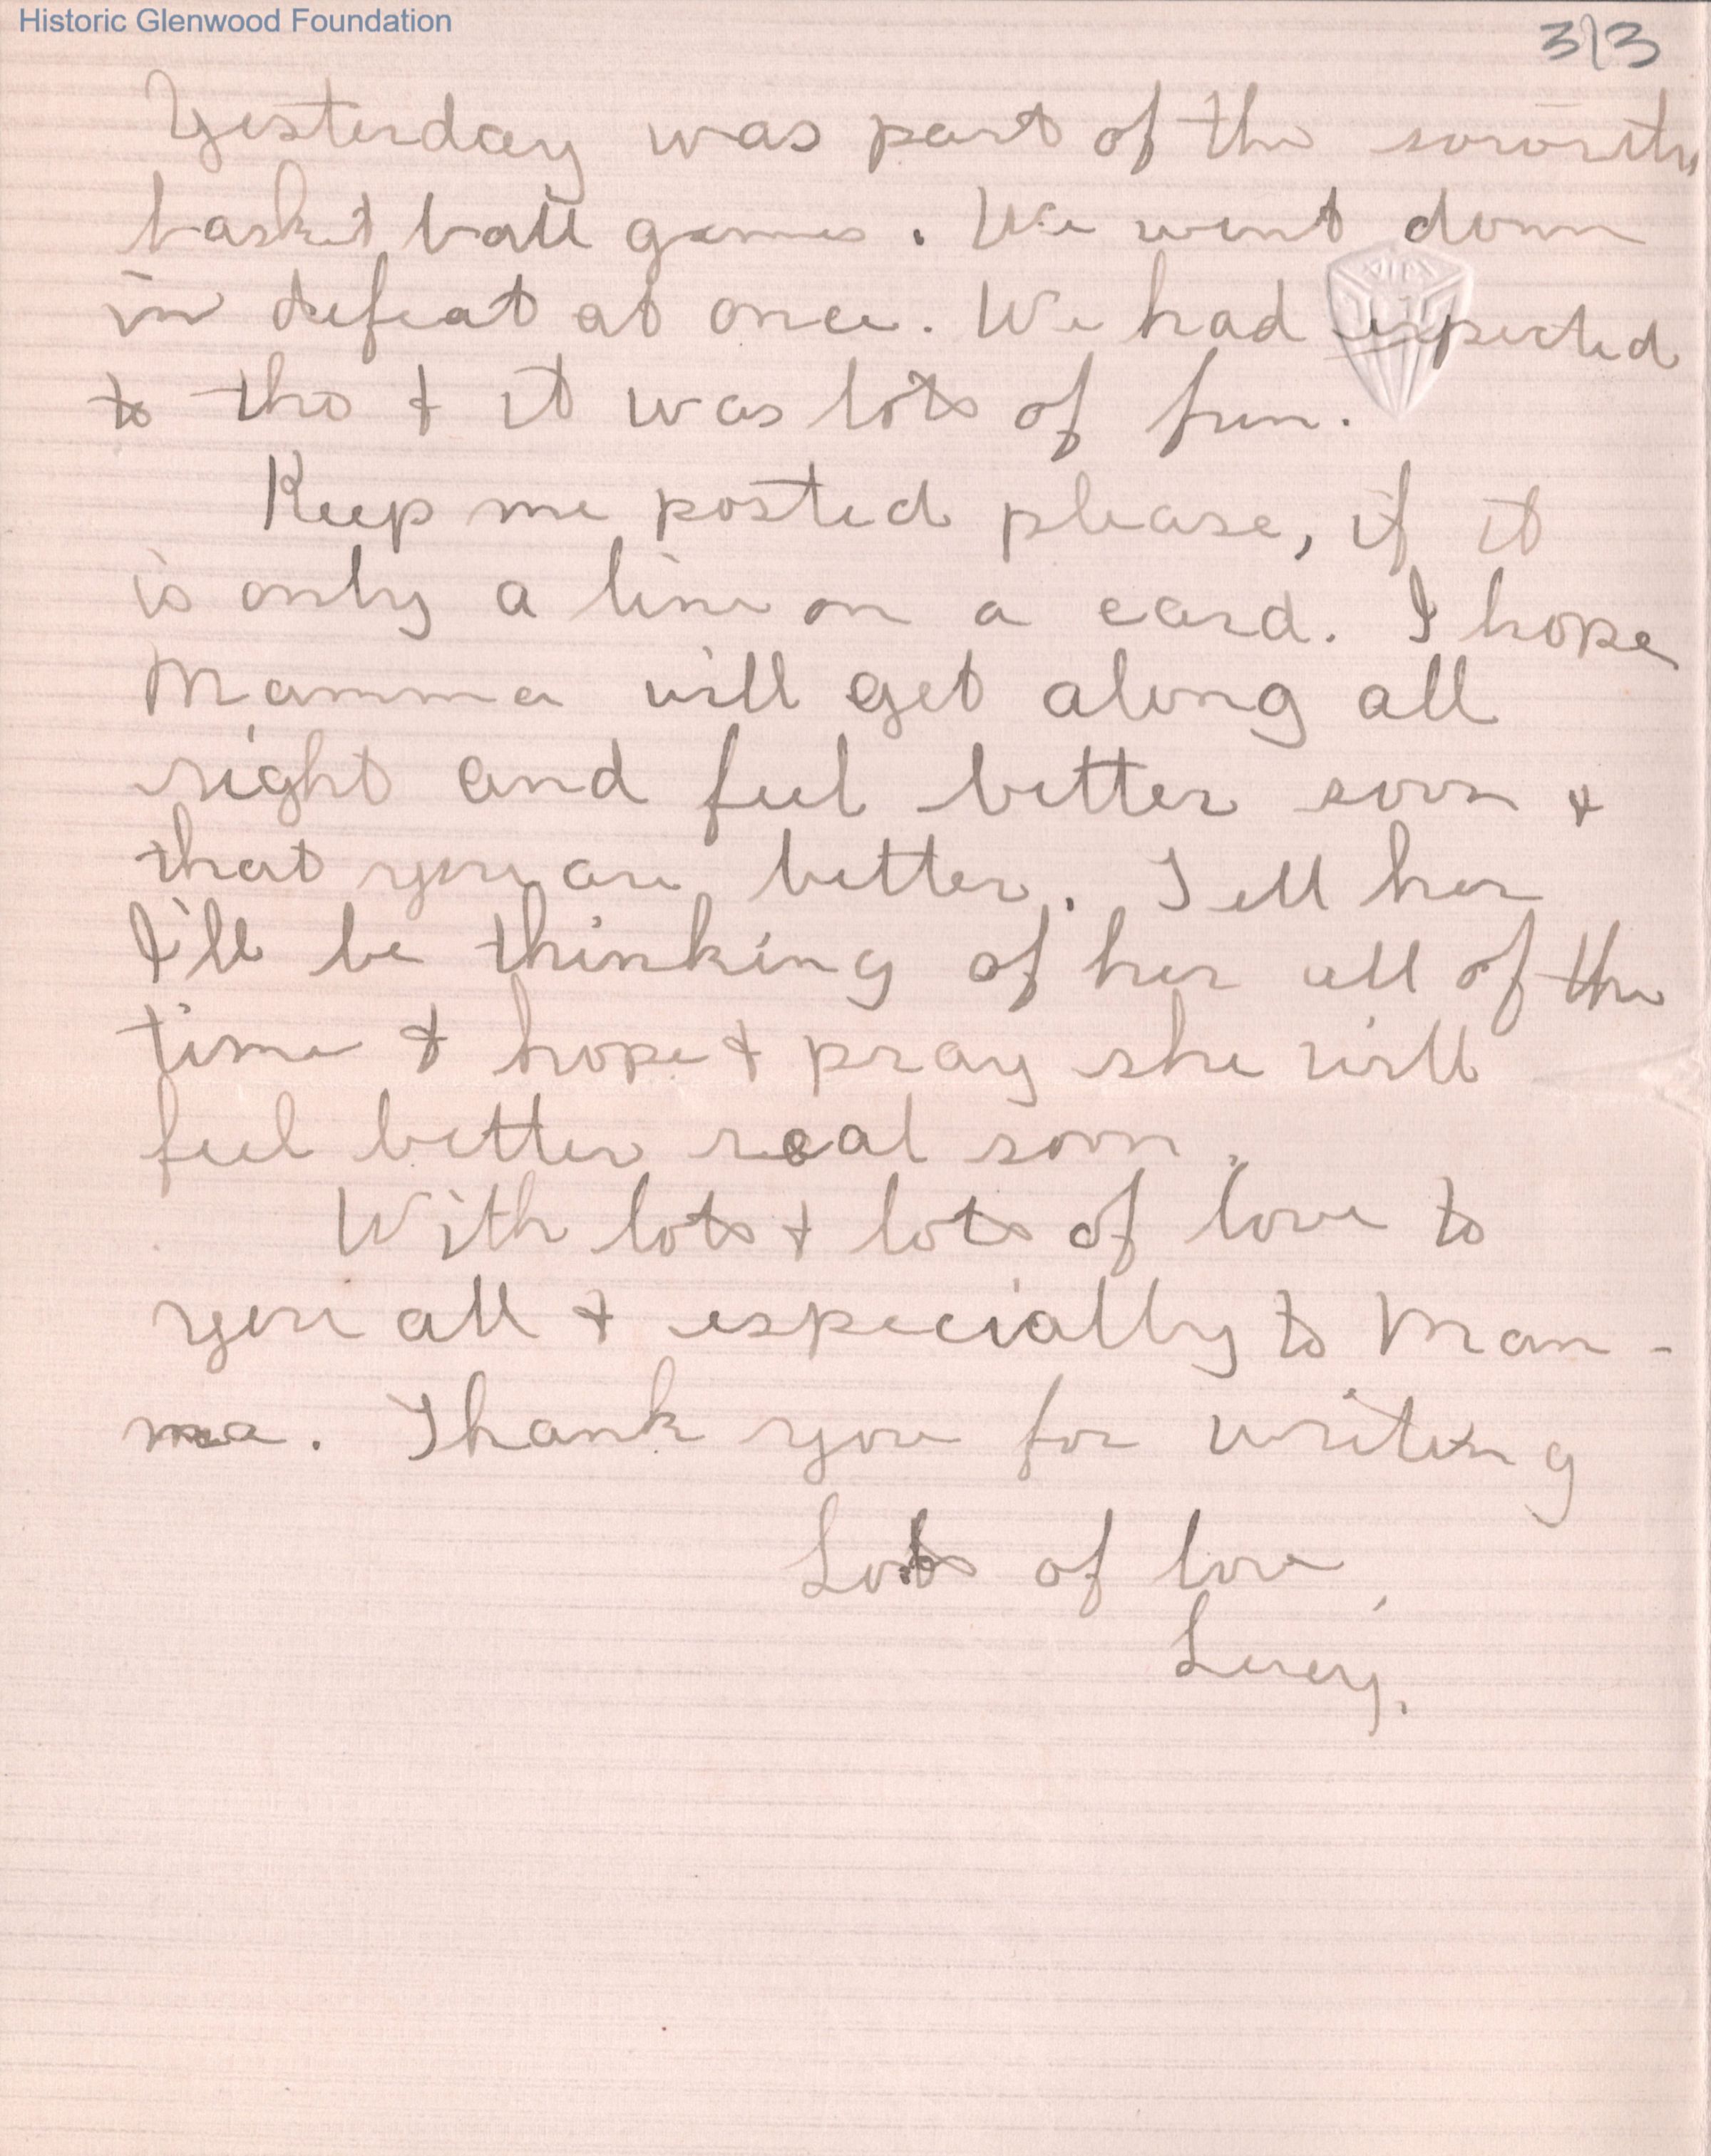 Historic Glenwood Foundation
3/3
Yesterday was part of the sorority
basket ball games. We went down
in defeat at once. We had expected
to tho & it was lots of fun.
Keep me posted please, if it
is only a line on a card. I hope
Mamma will get along all
right and feel better soon &
that you are better. Tell her
I'll be thinking of her all of the
time & hope & pray she will
feel better real soon.
With lots & lots of love to
you all & especially to Mam-
ma. Thank you for writing
Lots of love,
Lucy.